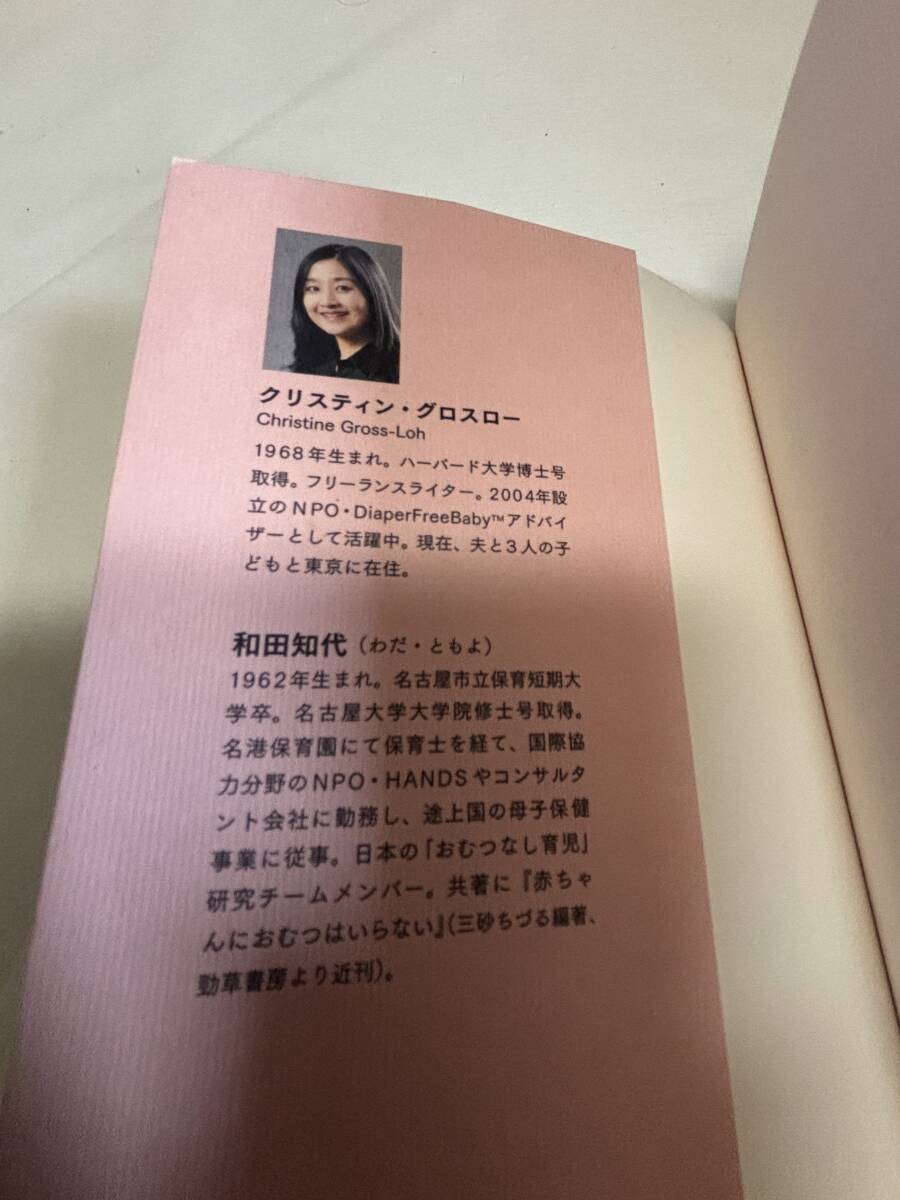 クリスティン・グロスロー
Christine Gross-Loh
1968年生まれ。ハーバード大学博士号
取得。フリーランスライター。2004年設
立のNPO・DiaperFreeBaby™アドバイ
ザーとして活躍中。現在、夫と3人の子
どもと東京に在住。
和田知代（わだ・ともよ）
1962年生まれ。名古屋市立保育短期大
学卒。名古屋大学大学院修士号取得。
名港保育園にて保育士を経て、国際協
力分野のNPO・HANDSやコンサルタ
ント会社に勤務し、途上国の母子保健
事業に従事。日本の「おむつなし育児」
研究チームメンバー。共著に『赤ちゃ
んにおむつはいらない』（三砂ちづる編著、
勁草書房より近刊）。